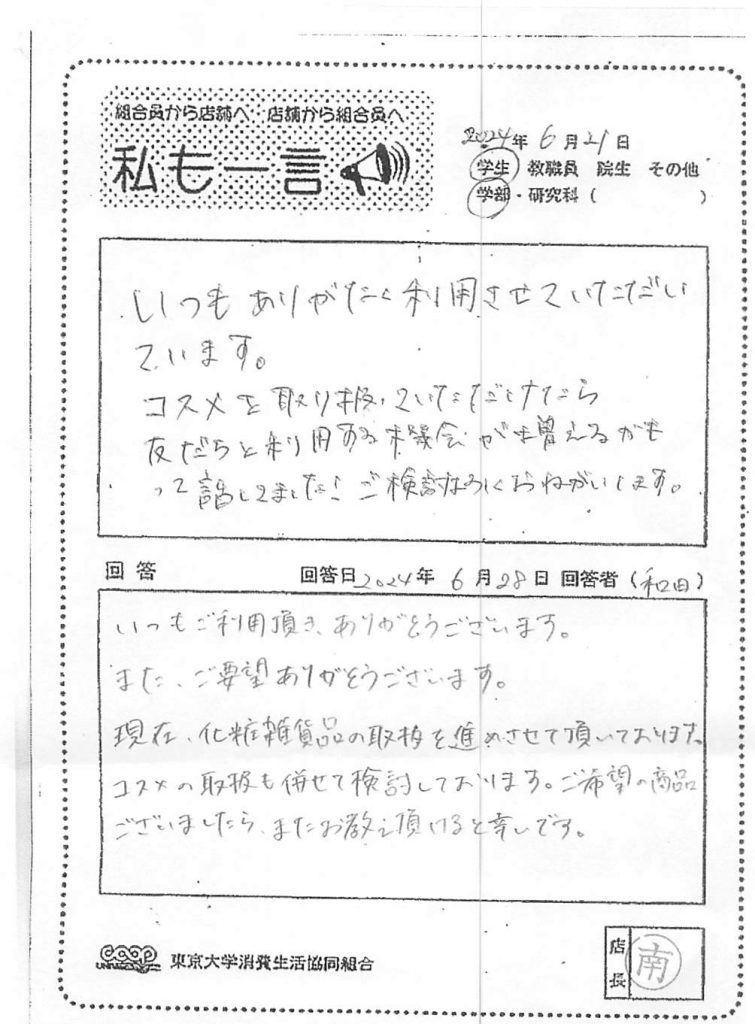 組合員から店舗へ 店舗から組合員へ
私も一言
2024年 6月21日
学生 教職員 院生 その他
学部・研究科 ( )
いつもありがたく利用させていただい
ています。
コスメを取り扱っていただけたら
友だちと利用する機会が増えるかも
って話してました! ご検討よろしくおねがいします。
回答 回答日 2024年 6月28日 回答者 (和田)
いつもご利用頂き、ありがとうございます。
また、ご要望ありがとうございます。
現在、化粧雑貨品の取扱を進めさせて頂いております。
コスメの取扱も併せて検討しております。ご希望の商品
ございましたら、またお教え頂けると幸いです。
coop 東京大学消費生活協同組合
店長 南